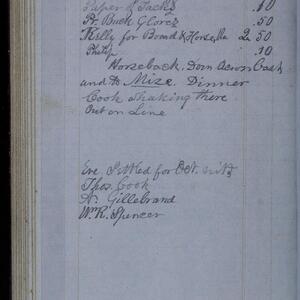 Paper of Tacks .10
Pr. Buck Gloves .50
Kelly for Board & Horse, 2.50
Philip .10
Horseback. Down Acorn
and to Mize. Dinner
Cook staking there
Out on Line
Eve. Settled for Oct. with
Thos. Cook
A. Gillebrand
Wm R. Spencer